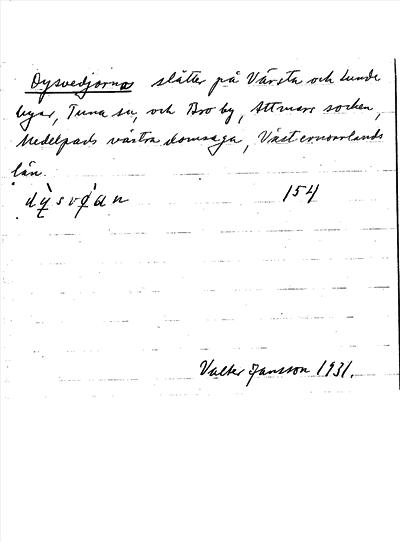 Dysvedjornas slåtter på Värsta och Lunde
byar, Tuna sn, och Bro by, Attmars socken,
Medelpads västra domsaga, Västernorrlands
län.
154
Valter Jansson 1931.